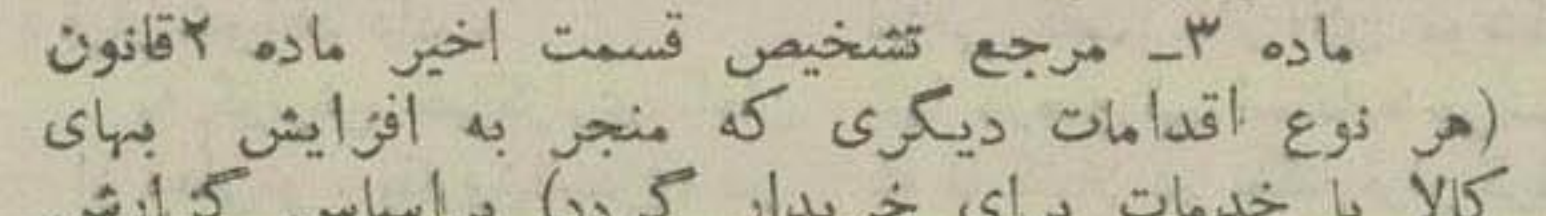 ماده ۳ـ مرجع تشخیص قسمت اخیر ماده ۲قانون
(هر نوع اقدامات دیگری که منجر به افزایش بهای
کالا یا خدمات برای خریدار گردد) براساس گزارش